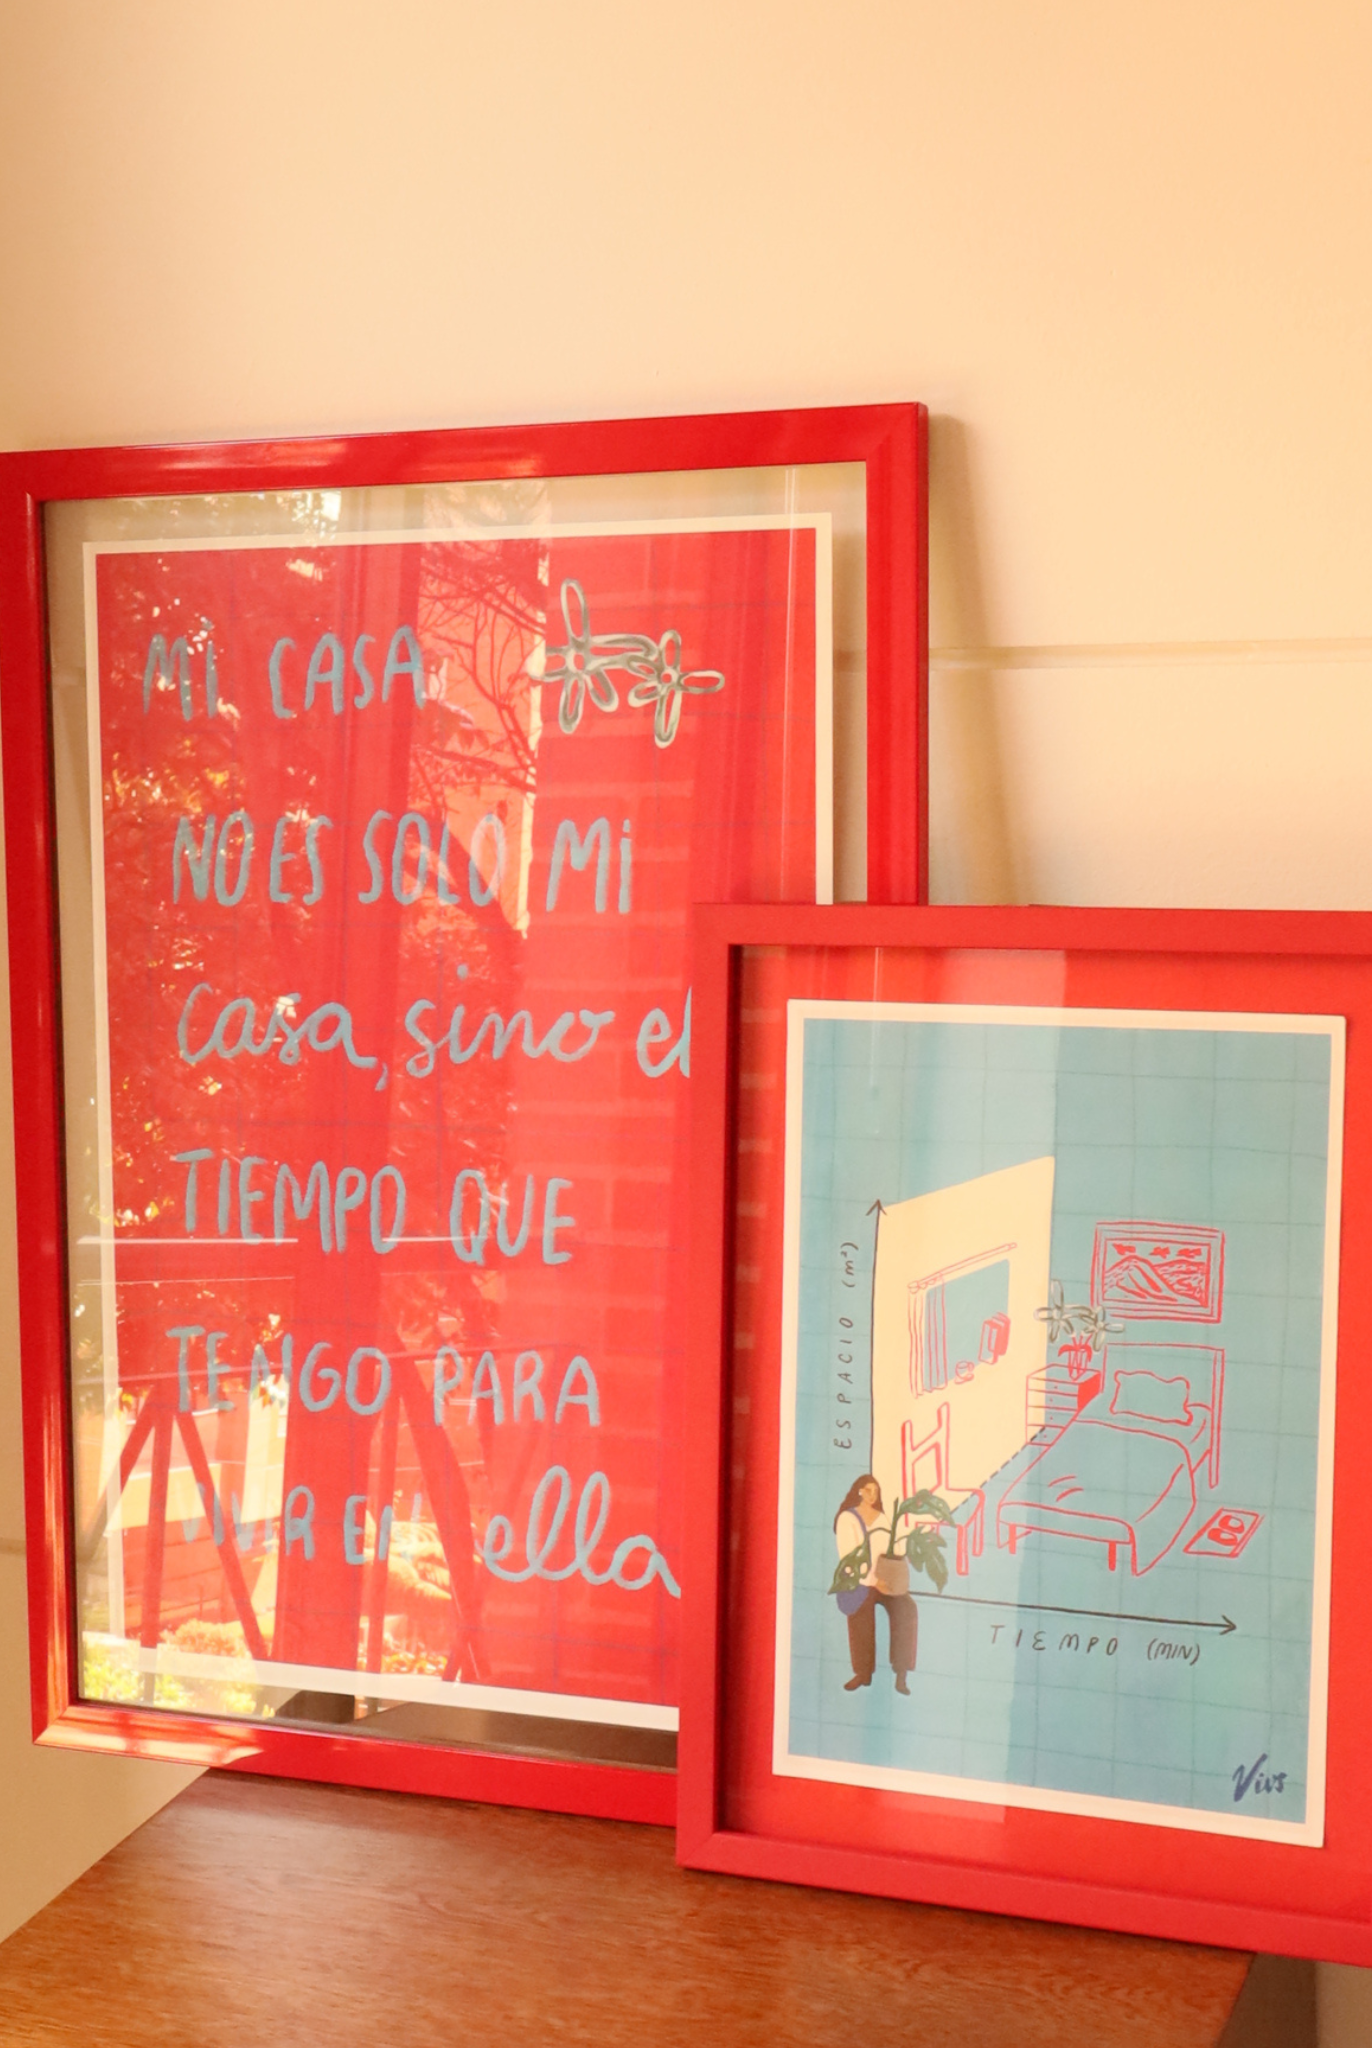 MI CASA
NO ES SOLO MI
casa, sino el
TIEMPO QUE
TENGO PARA
VIVIR EN ella
ESPACIO (m²)
TIEMPO (MIN)
Vivs